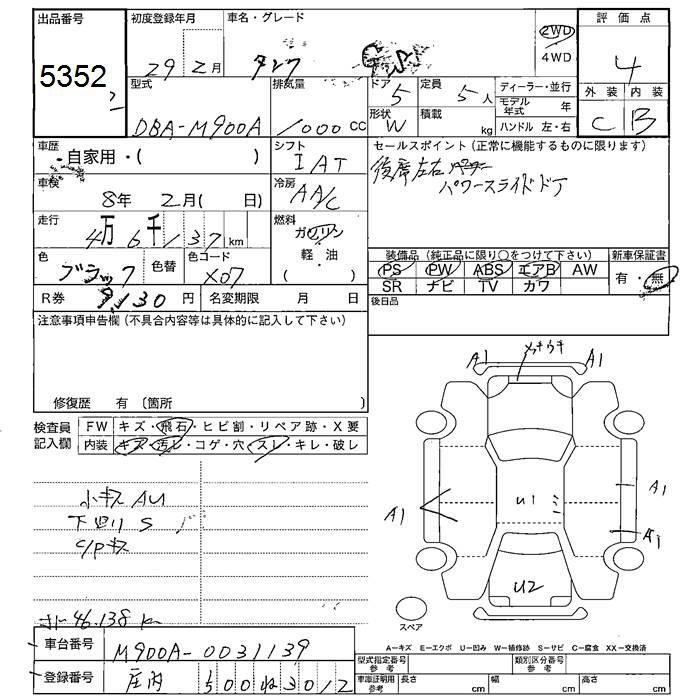 出品番号 初度登録年月 車名・グレード 2WD 4WD 評価点
5352 29年 2月 タンク 4
型式 排気量 ドア 定員 ディーラー・並行 外装 内装
DBA-M900A 1000 CC 5 5人 モデル年式 年 C B
形状 積載 ハンドル 左・右
W kg
車歴 自家用・( ) シフト IAT セールスポイント(正常に機能するものに限ります)
車検 8年 2月( 日) 冷房 AA/C 後席左右 パワースライドドア
走行 4万6千137km 燃料 ガソリン 軽・油 ( )
色 ブラック 色替 色コード X07
装備品(純正品に限り○をつけて下さい) 新車保証書
PS PW ABS エアB AW 有・無
SR ナビ TV カワ
R券 9,130円 名変期限 月 日 後日品
注意事項申告欄(不具合内容等は具体的に記入して下さい)
修復歴 有 〔箇所 〕
検査員記入欄 FW キズ・飛石・ヒビ割・リペア跡・X要
内装 キズ・汚レ・コゲ・穴・スレ・キレ・破レ
A1 メッキウキ A1
小キズ AU
下回り S
C/Pキズ
A1 U1 A1
A1
U2
スペア
46.138 k
車台番号 M900A-0031139
登録番号 庄内 500 ね 3012
A−キズ E−エクボ U−凹み W−補修跡 S−サビ C−腐食 XX−交換済
型式指定番号 参考 類別区分番号 参考
車庫証明用 参考 長さ cm 幅 cm 高さ cm